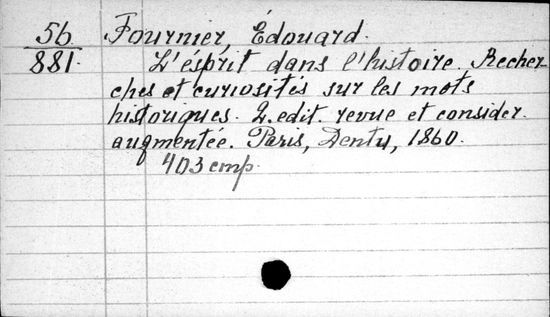 56
881.
Fournier, Édouard.
L'ésprit dans l'histoire. Recher
ches et curiosités sur les mots
historiques. 2. edit. revue et consider.
augmentée. Paris, Dentu, 1860.
403 стр.